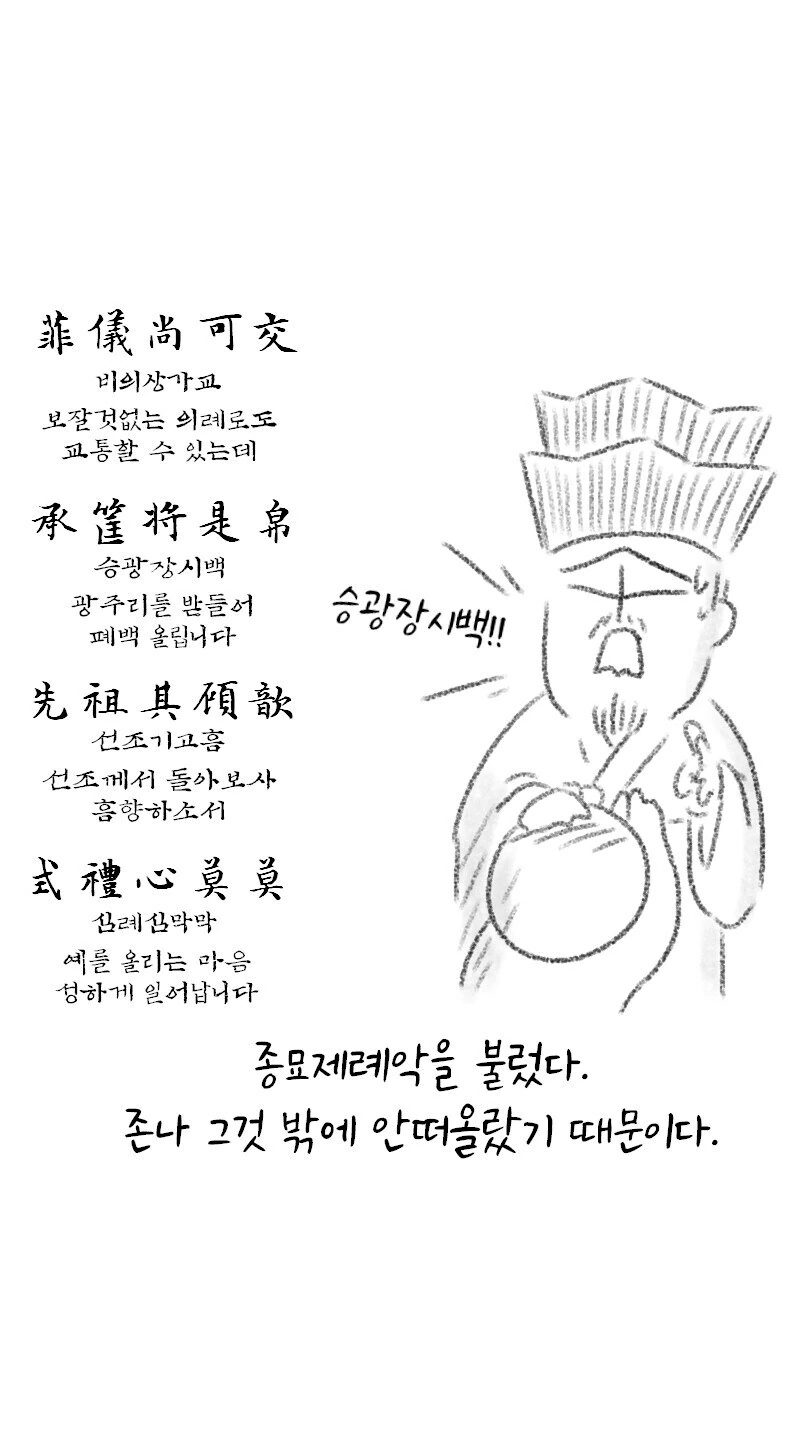 菲儀尚可交
비의상가교
보잘것없는 의례로도
교통할 수 있는데
承筐将是帛
승광장시백
광주리를 받들어
폐백 올립니다
先祖其頋歆
선조기고흠
선조께서 돌아보사
흠향하소서
式禮心莫莫
심례심막막
예를 올리는 마음
성하게 일어납니다
승광장시백!!
종묘제례악을 불렀다.
존나 그것 밖에 안떠올랐기 때문이다.